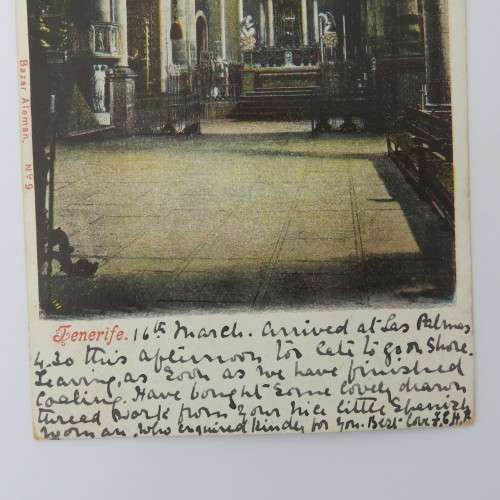 Bazar Aleman, No. 9
Tenerife. 16th March. Arrived at Las Palmas
4.30 this afternoon too late to go on Shore.
Leaving, as soon as we have finished
Coaling. Have bought some lovely drawn
thread work from your nice little Spanish
woman, who enquired kindly for you. Best love